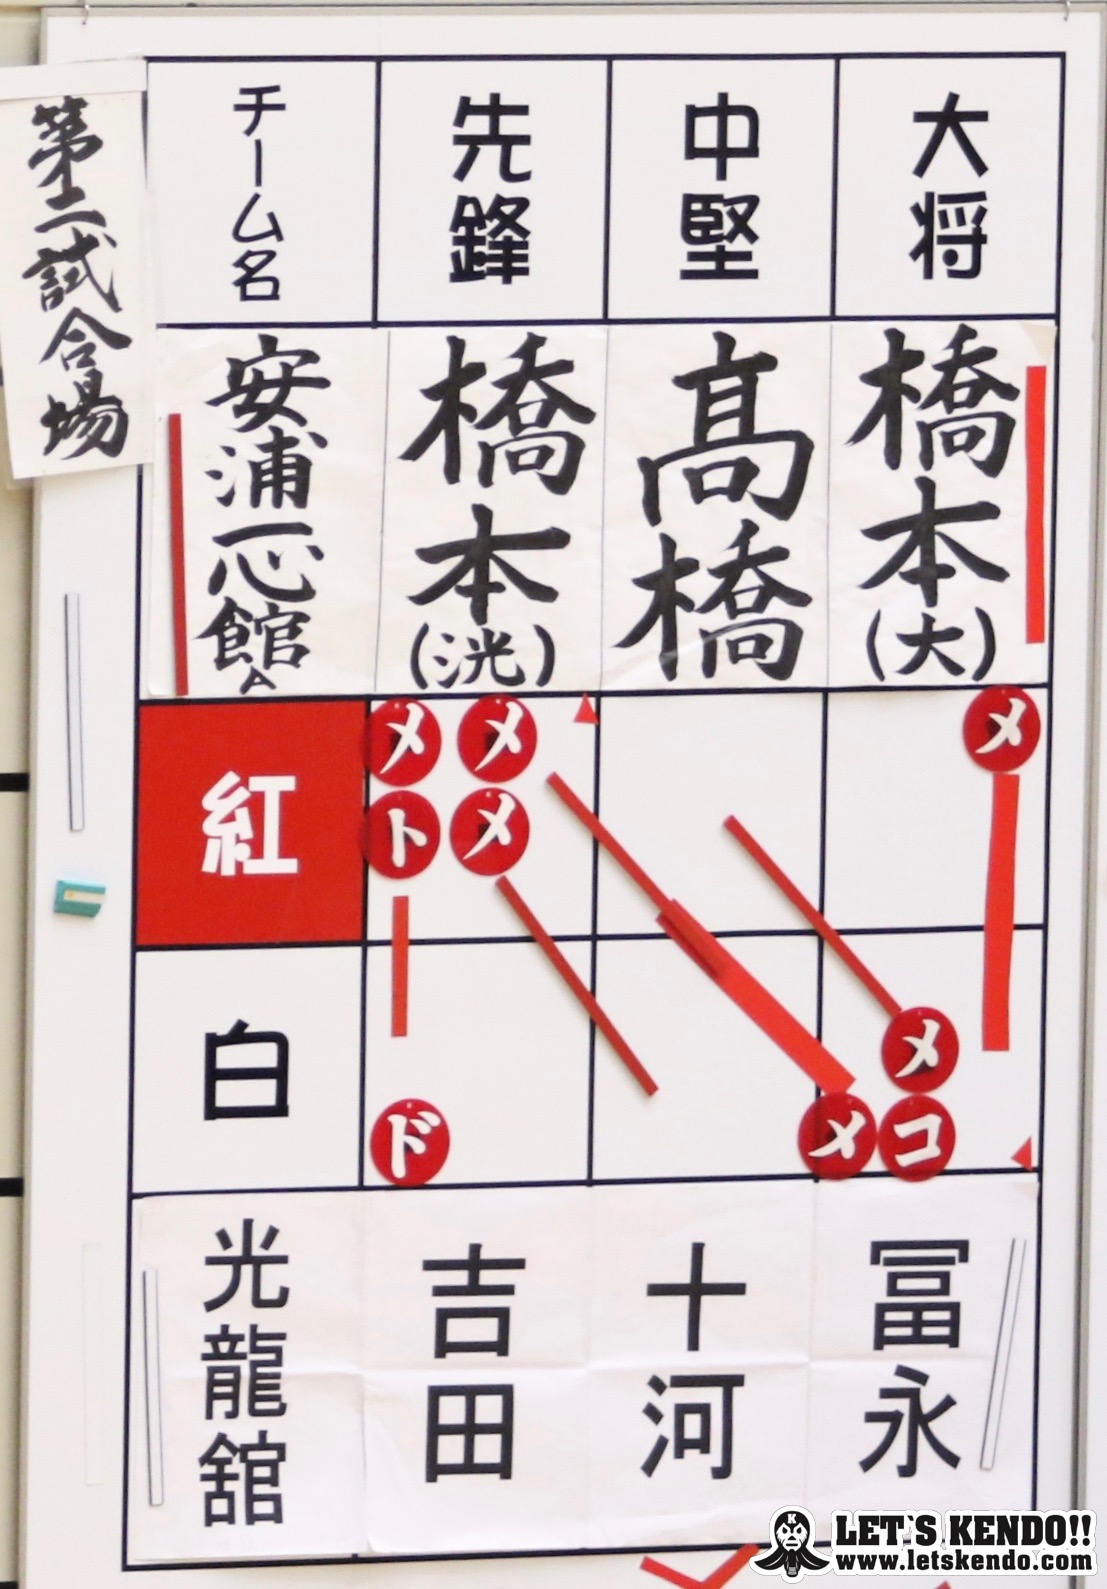 第二試合場
チーム名
先鋒
中堅
大将
安浦一心館A
橋本(洸)
髙橋
橋本(大)
紅
メ メ
ト メ
メ
白
メ
ド
メ コ
光龍舘
吉田
十河
冨永
LET'S KENDO!!
www.letskendo.com